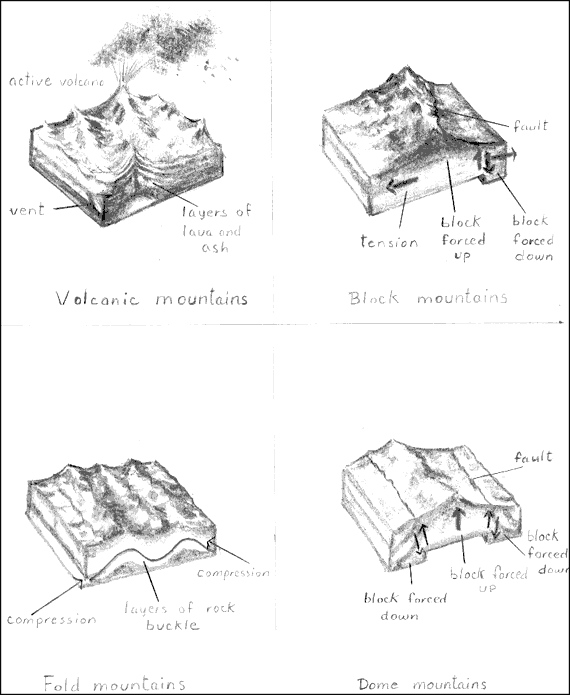 active volcano
vent
layers of
lava and
ash
Volcanic mountains
fault
tension
block
forced
up
block
forced
down
Block mountains
compression
compression
layers of rock
buckle
Fold mountains
fault
block
forced
down
block forced
up
block forced
down
Dome mountains